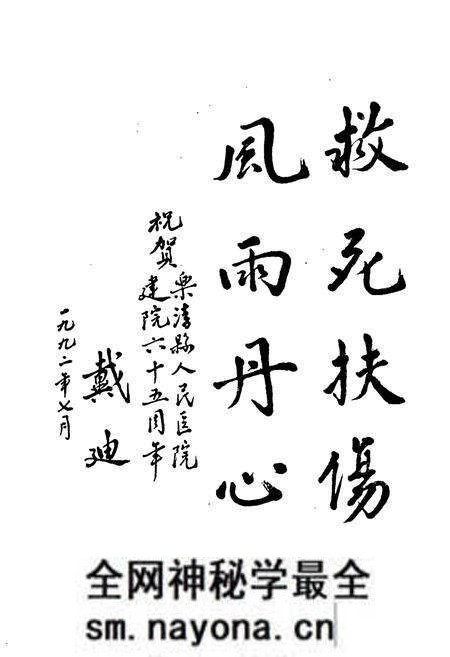 救死扶傷
風雨丹心
祝賀樂清縣人民医院
建院六十五周年
戴迪
一九九二年七月
全网神秘学最全
sm.nayona.cn